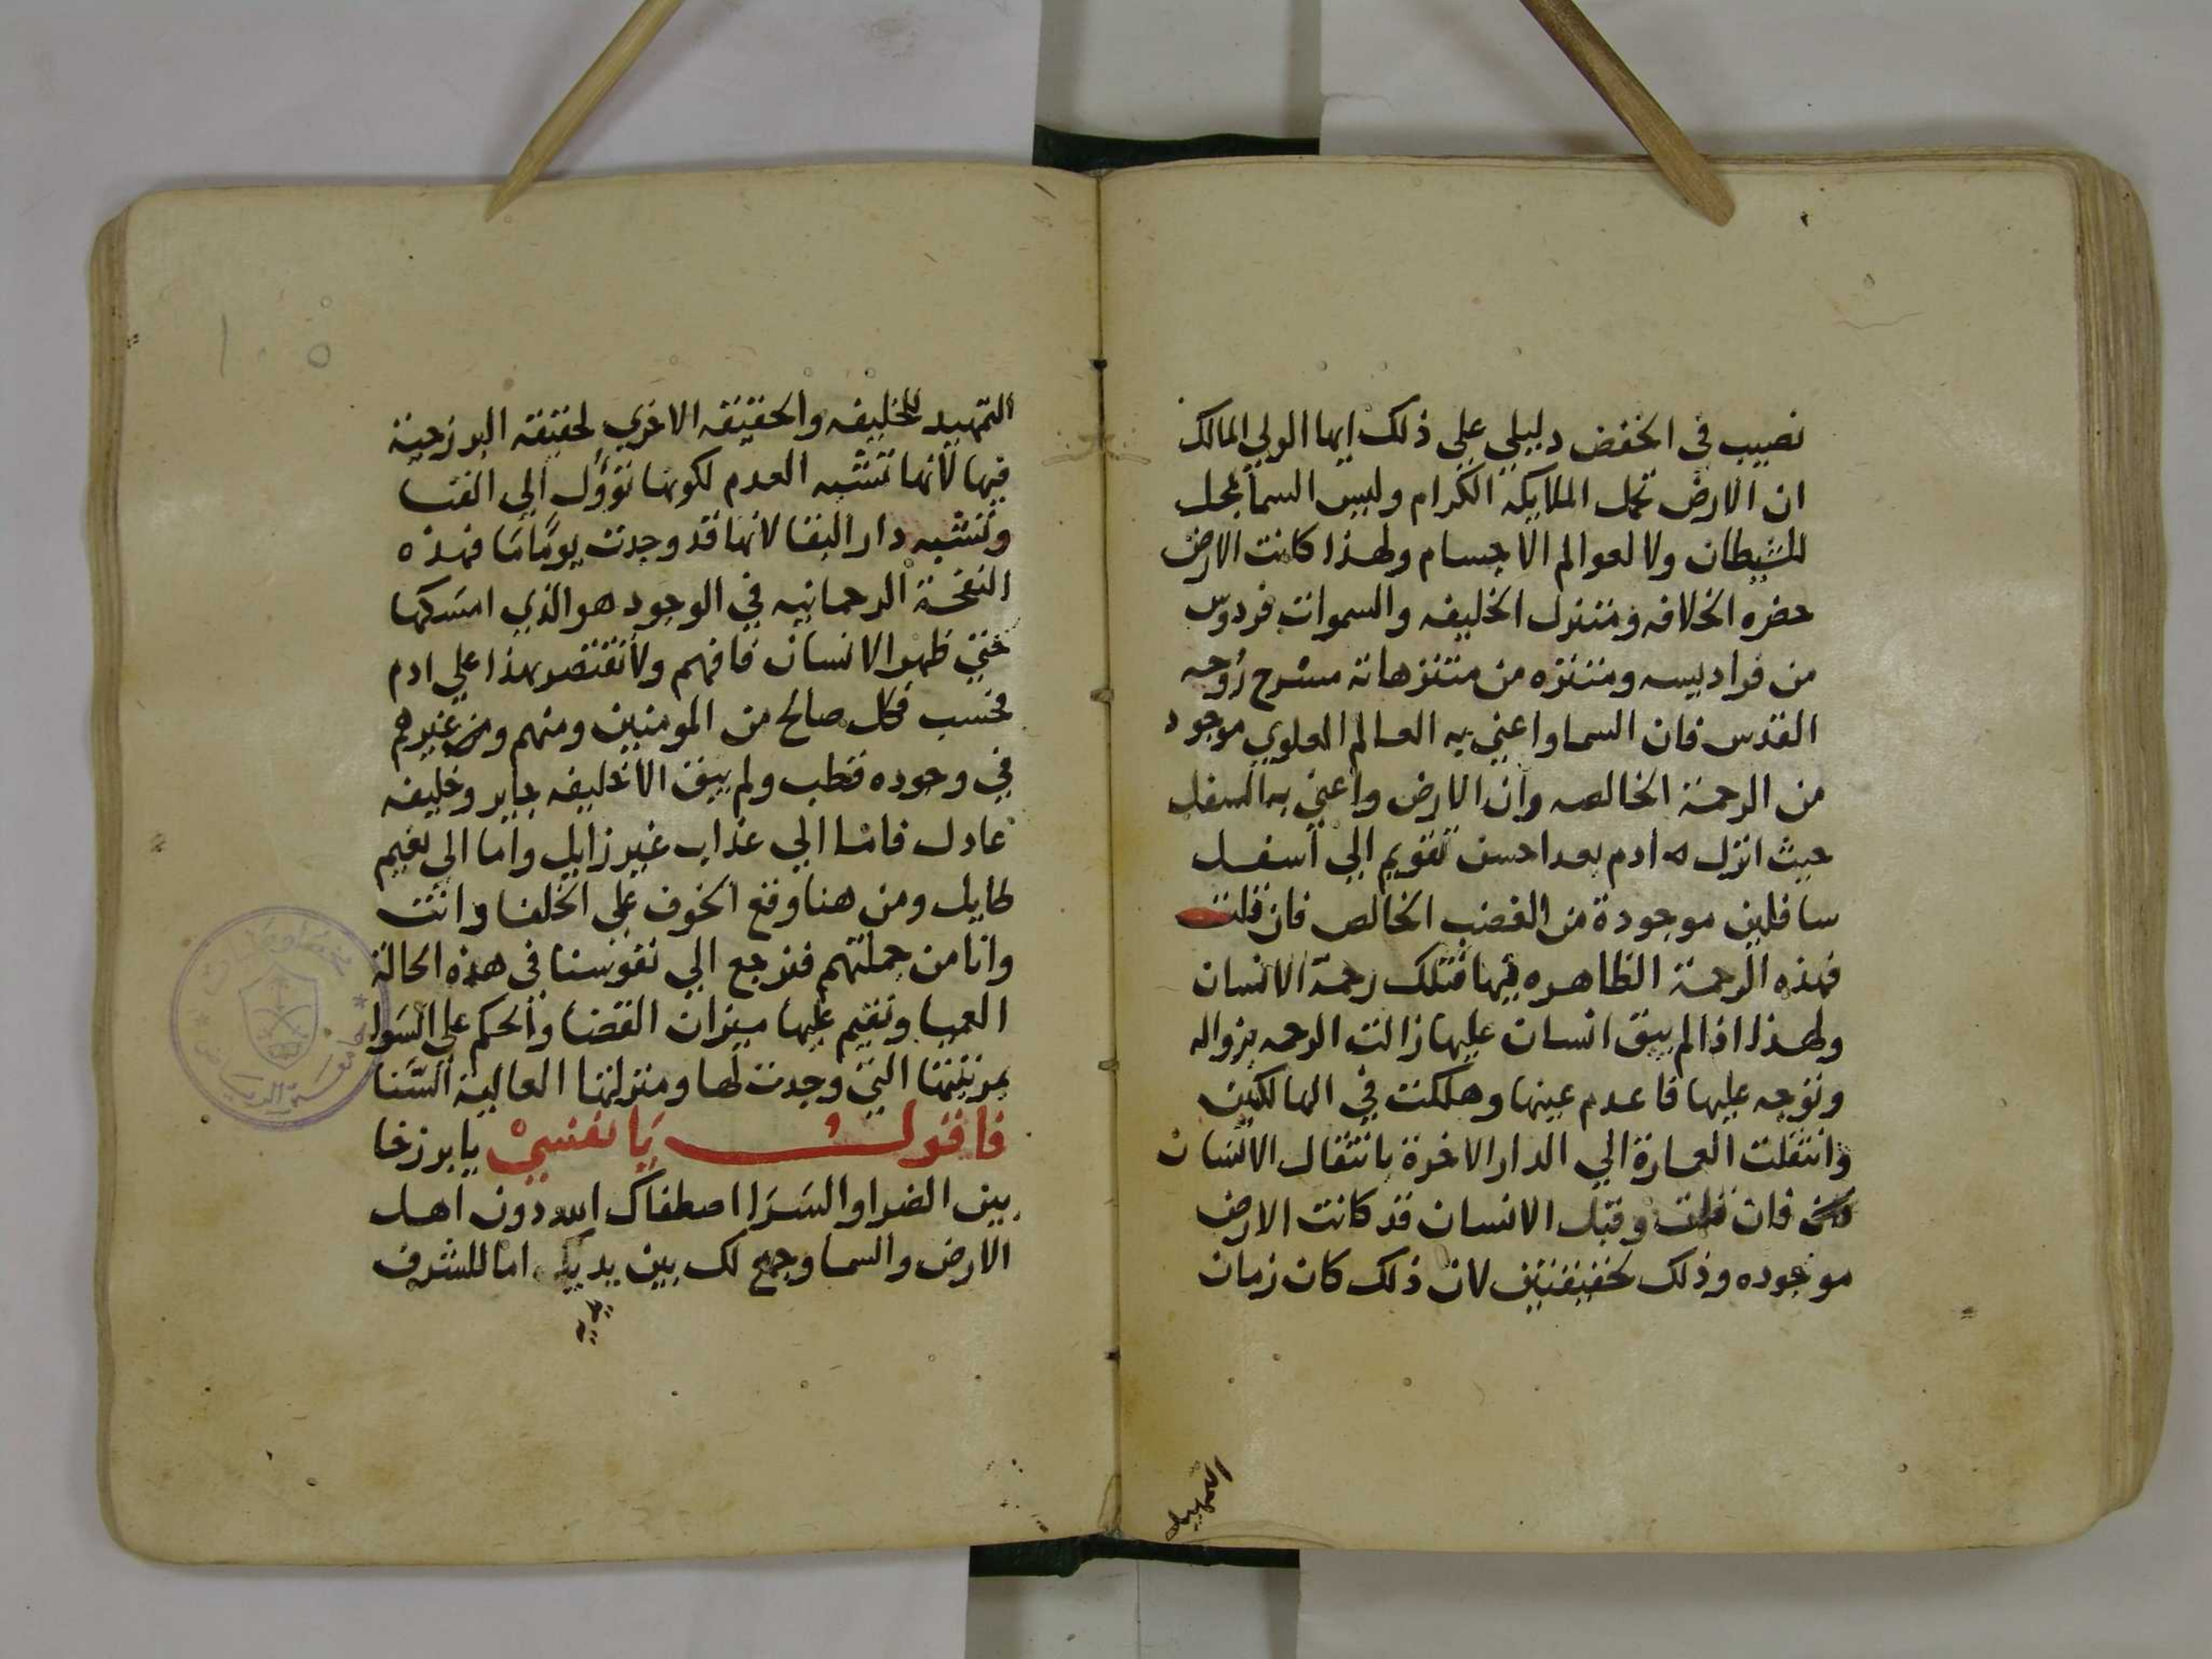 نصيب في الخفض دليلي علي ذلك ايها الولي المالك
ان الارض تحمل الملايكه الكرام وليس السما بمحل
للشيطان ولا لعوالم الاجسام ولهذا كانت الارض
حضره الخلافه ومتنزل الخليفه والسموات فردوس
من فراديسه ومتنزه من متنزهاته مسرح روحه
القدس فان السما واعني به العالم العلوي موجود
من الرحمة الخالصه وان الارض واعني به السفل
حيث انزل ادم بعد احسن تقويم الي اسفل
سافلين موجودة من الغضب الخالص فان قلت
فهذه الرحمة الظاهره فيها فتلك رحمة الانسان
ولهذا اذا لم يبق انسان عليها زالت الرحمه بزواله
وتوجه عليها فاعدم عينها وهلكت في الهالكين
وانتقلت العمارة الي الدار الاخرة بانتقال الانسان
فان قلت وقبل الانسان قد كانت الارض
موجوده وذلك لحقيقتين لان ذلك كان زمان
التمهيد
التمهيد للخليفه والحقيقه الاخري لحقيقه البرزخية
فيها لانها تشبه العدم لكونها تؤول الي الفنا
وتشبه دار البقا لانها قد وجدت يوما ما فهذه
النفخة الرحمانيه في الوجود هو الذي امسكها
حتي ظهر الانسان فافهم ولا تقتصر بهذا علي ادم
فحسب فكل صالح من المومنين ومنهم ومن غيرهم
في وجوده قطب ولم يبق الا خليفه جاير وخليفه
عادل فاما الي عذاب غير زايل واما الي نعيم
طايل ومن هنا وقع الخوف علي الخلفا وانت
وانا من جملتهم فنرجع الي نفوسنا في هذه الحالة
العميا ونقيم عليها ميزان القضا والحكم علي السوا
بمرتبتها التي وجدت لها ومنزلتها العالية السنا
فاقول يا نفسي يا برزخا
بين الضرا والسرا اصطفاك الله دون اهل
الارض والسما وجمع لك بين يديه اما للشرف